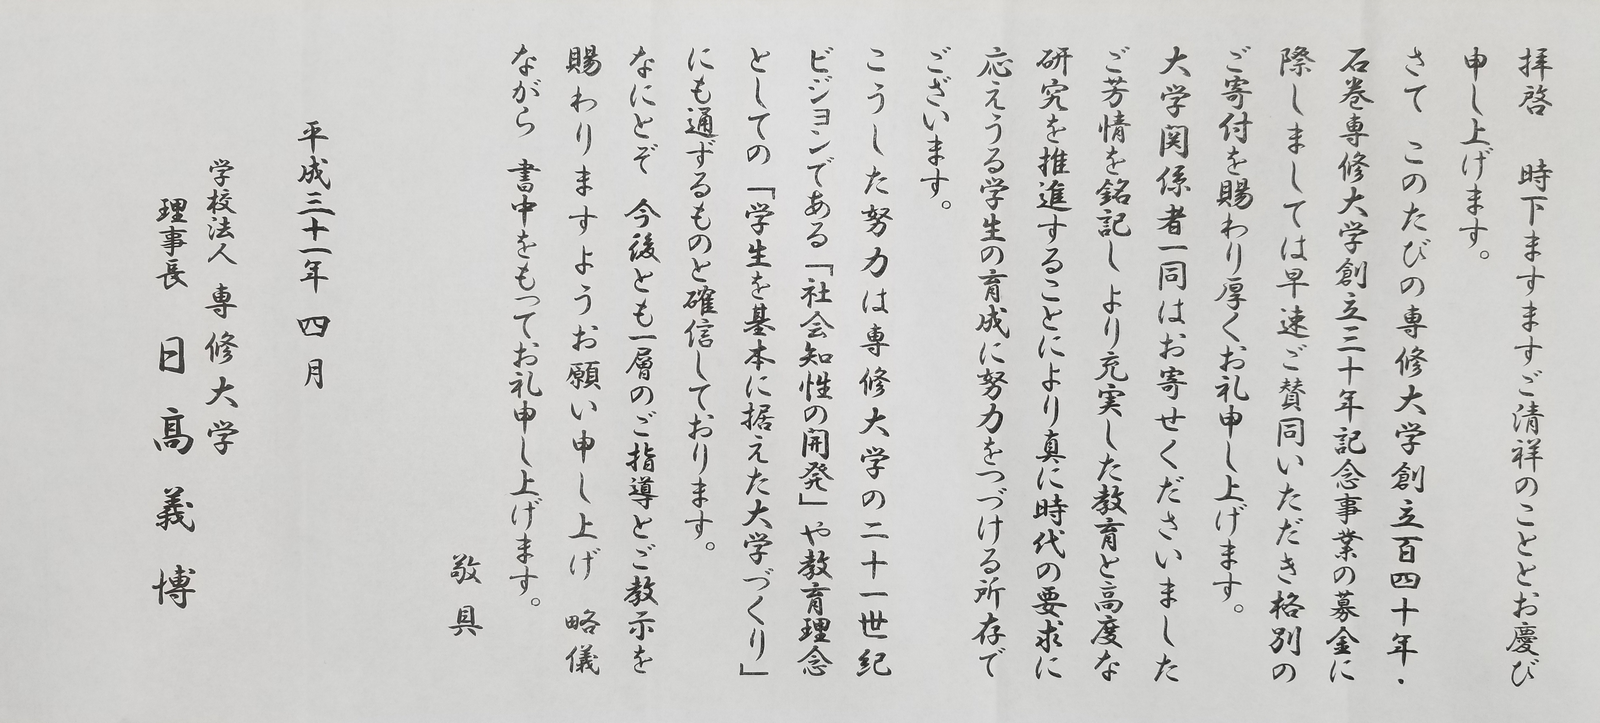 拝啓　時下ますますご清祥のこととお慶び
申し上げます。
さて このたびの専修大学創立百四十年・
石巻専修大学創立三十年記念事業の募金に
際しましては早速ご賛同いただき格別の
ご寄付を賜わり厚くお礼申し上げます。
大学関係者一同はお寄せくださいました
ご芳情を銘記し より充実した教育と高度な
研究を推進することにより真に時代の要求に
応えうる学生の育成に努力をつづける所存で
ございます。
こうした努力は専修大学の二十一世紀
ビジョンである「社会知性の開発」や教育理念
としての「学生を基本に据えた大学づくり」
にも通ずるものと確信しております。
なにとぞ 今後とも一層のご指導とご教示を
賜わりますようお願い申し上げ 略儀
ながら 書中をもってお礼申し上げます。
敬具
平成三十一年 四月
学校法人 専修大学
理事長 日髙義博